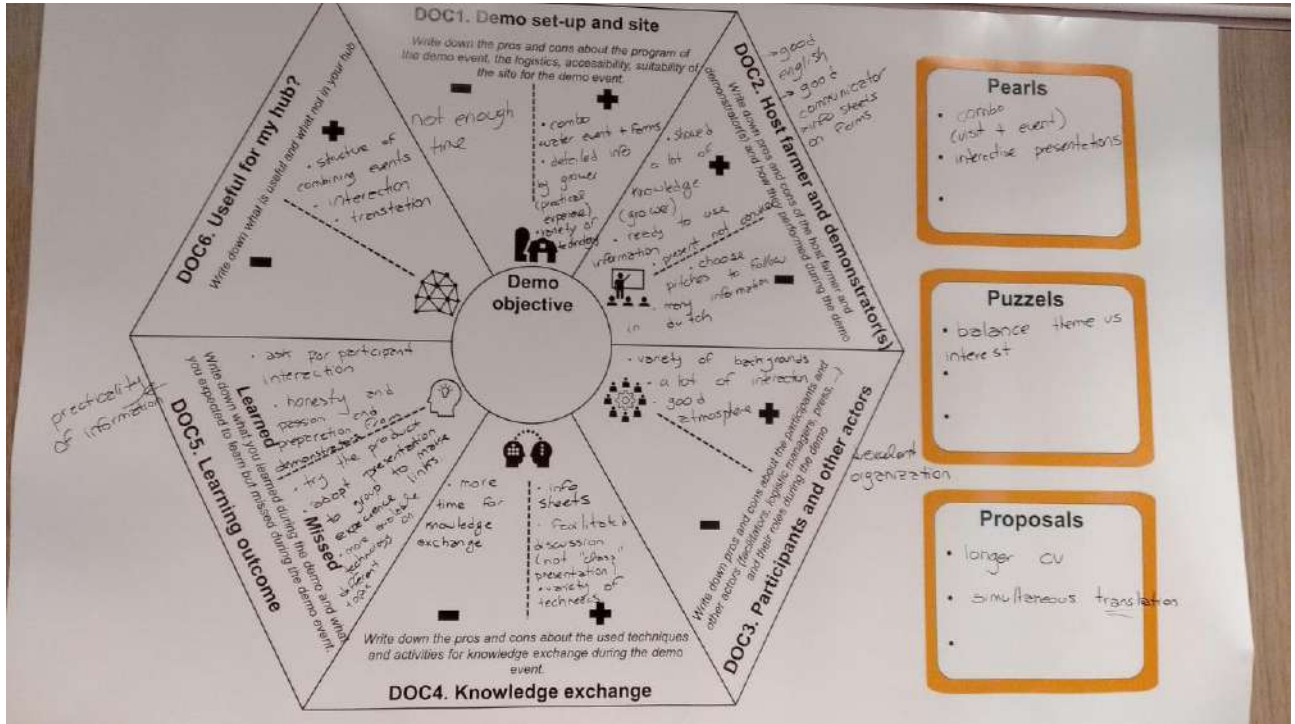 DOC1. Demo set-up and site
Write down the pros and cons about the program of
the demo event, the logistics, accessibility, suitability of
the site for the demo event.
not enough
time
• combo
water event + farms
• detailed info
by grower
(practical
• variety of
DOC2. Host farmer and demonstrator(s)
Write down pros and cons of the host farmer and
demonstrator(s) and how they performed during the demo
→ good
english
→ good
communicator
info sheets
on farms
a lot of
knowledge
• ready to use
information
• present not
• choose
pitches to follow
• many information
in dutch
DOC3. Participants and other actors
Write down pros and cons about the participants and
other actors (facilitators, logistic managers, press, ...)
and their roles during the demo
• variety of backgrounds
• a lot of interaction
• good
atmosphere
organization
DOC4. Knowledge exchange
Write down the pros and cons about the used techniques
and activities for knowledge exchange during the demo
event.
• more
time for
knowledge
exchange
• info
sheets
• facilitated
discussion
(not "class"
presentation)
• variety of
DOC5. Learning outcome
Write down what you learned during the demo and what
you expected to learn but missed during the demo event.
Learned
• ask for participant
interaction
• honesty and
passion and
preparation from
demonstrators
Missed
• try the product
• adapt presentation
to group to make
experience links
• more available
technology on
different
topic
practicality
of information
DOC6. Useful for my hub?
Write down what is useful and what not in your hub
• structure of
combining events
• interaction
• translation
Demo
objective
Pearls
• combo
(visit + event)
• interactive presentations
•
Puzzels
• balance theme vs
interest
•
•
Proposals
• longer cv
• simultaneous translation
•